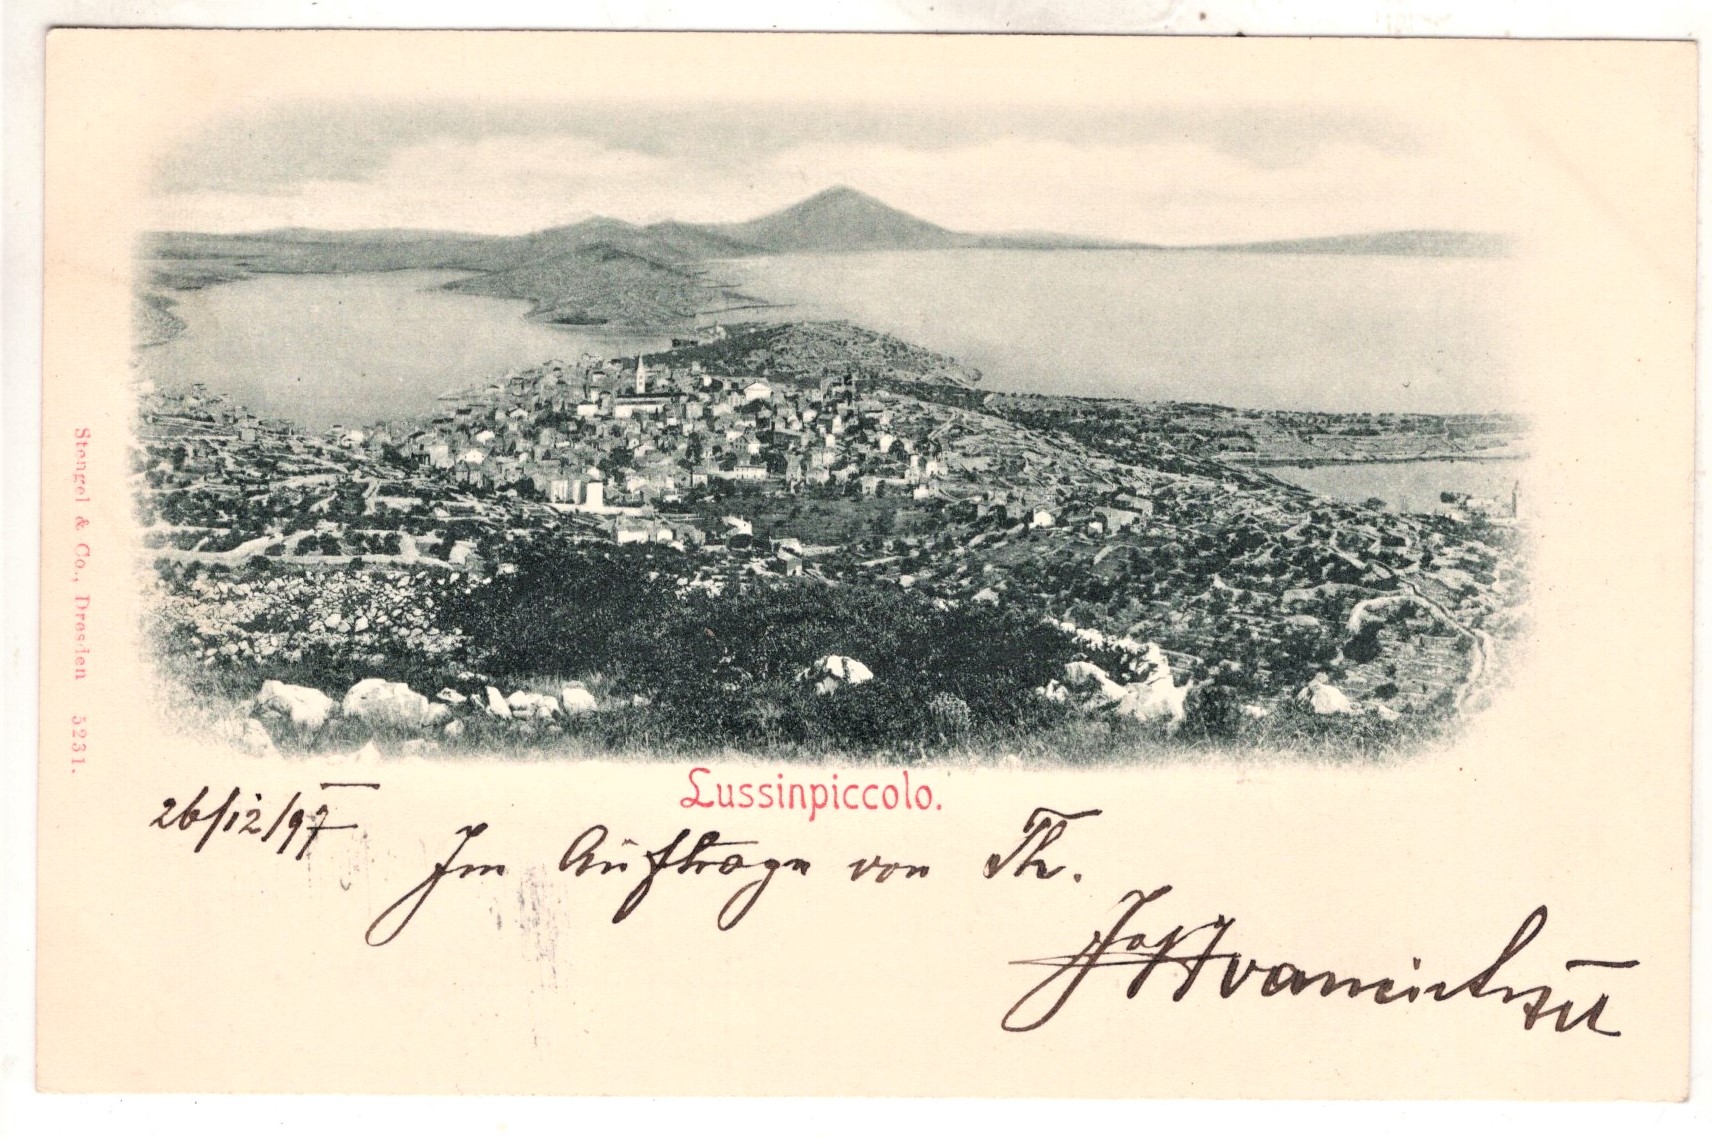 Stengel & Co., Dresden 5231.
Lussinpiccolo.
26/12/97
Im Auftrage von Th.